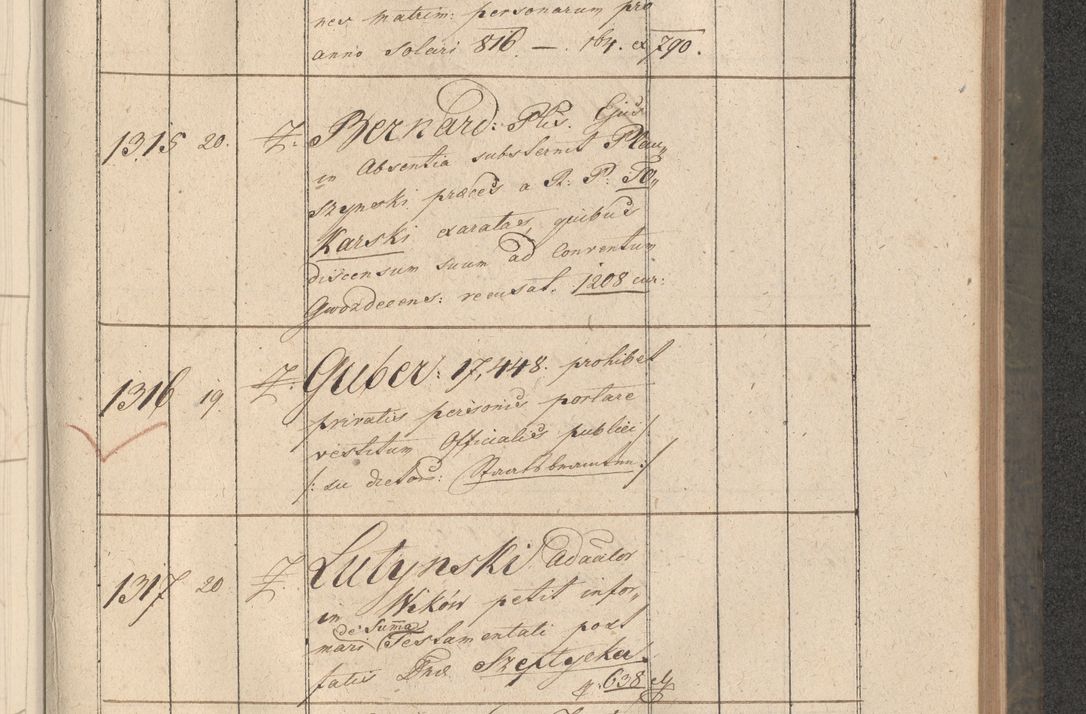 nes matrim: personarum pro
anno solari 816 — 164. ex 790.
1315 20. Z. Bernard: Ptis. Ejus
in Absentia substernit Plau„
szynski præces a R: P: To„
Karski exaratas, quibus
discensum suum ad Conventum
Gwozdecens: recusat. 1208 cur:
1316 19. Z. Guber: 17,448. prohibet
privatis personis portare
vestitum Officialis publici
/: sic dictos: Staatsbeamten :/
1317 20 Z. Lutynski
in Wików petit infor„
mari de Summa Testamentali post
fatis Dnæ Szeptycka.
p: 638